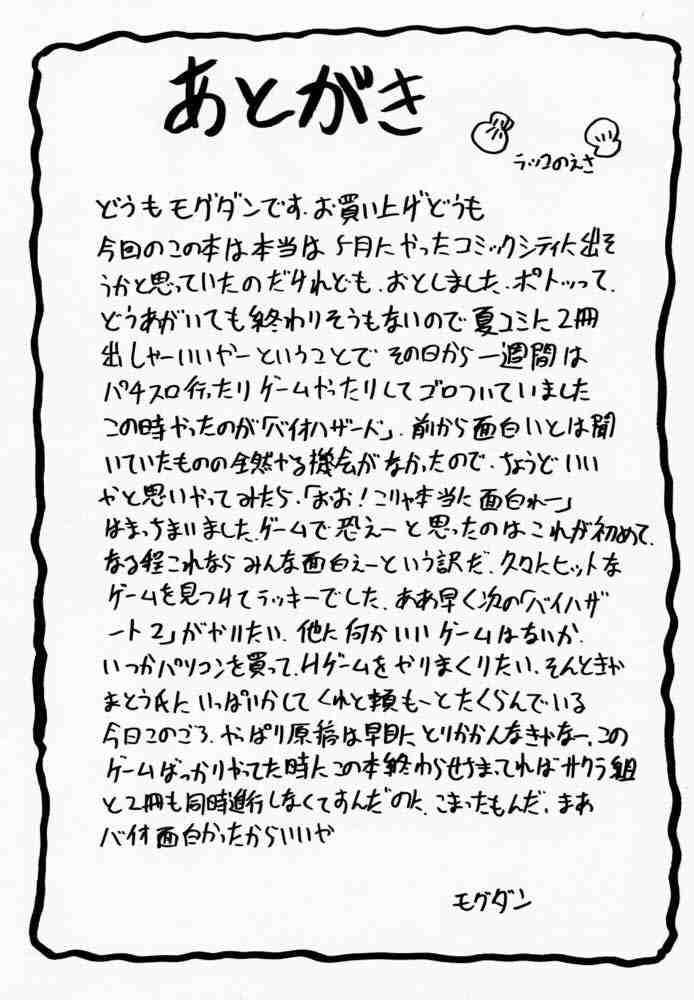 あとがき
ラッコのえさ
どうもモグダンです。お買い上げどうも
今回のこの本は本当は5月にやったコミックシティに出そ
うかと思っていたのだけれども、おとしました、ポトッって、
どうあがいても終わりそうもないので夏コミに2冊
出しゃーいいやーということでその日から一週間は
パチスロ行ったりゲームやったりしてゴロついていました
この時やったのが「バイオハザード」、前から面白いとは聞
いていたものの全然やる機会がなかったので、ちょうどいい
やと思いやってみたら、「おお！こりゃ本当に面白れー」
はまっちまいました。ゲームで恐えーと思ったのはこれが初めて、
なる程これならみんな面白えーという訳だ、久々にヒットな
ゲームを見つけてラッキーでした、ああ早く次の「バイハザ
ート2」がやりたい、他に何かいいゲームはないか、
いつかパソコンを買って、Hゲームをやりまくりたい、そんときゃ
まとう氏にいっぱいかしてくれと頼もーとたくらんでいる
今日このごろ、やっぱり原稿は早目にとりかかんなきゃなー、この
ゲームばっかりやってた時にこの本終わらせちまってればサクラ組
と2冊も同時進行しなくてすんだのに、こまったもんだ、まあ
バイオ面白かったからいいや
モグダン